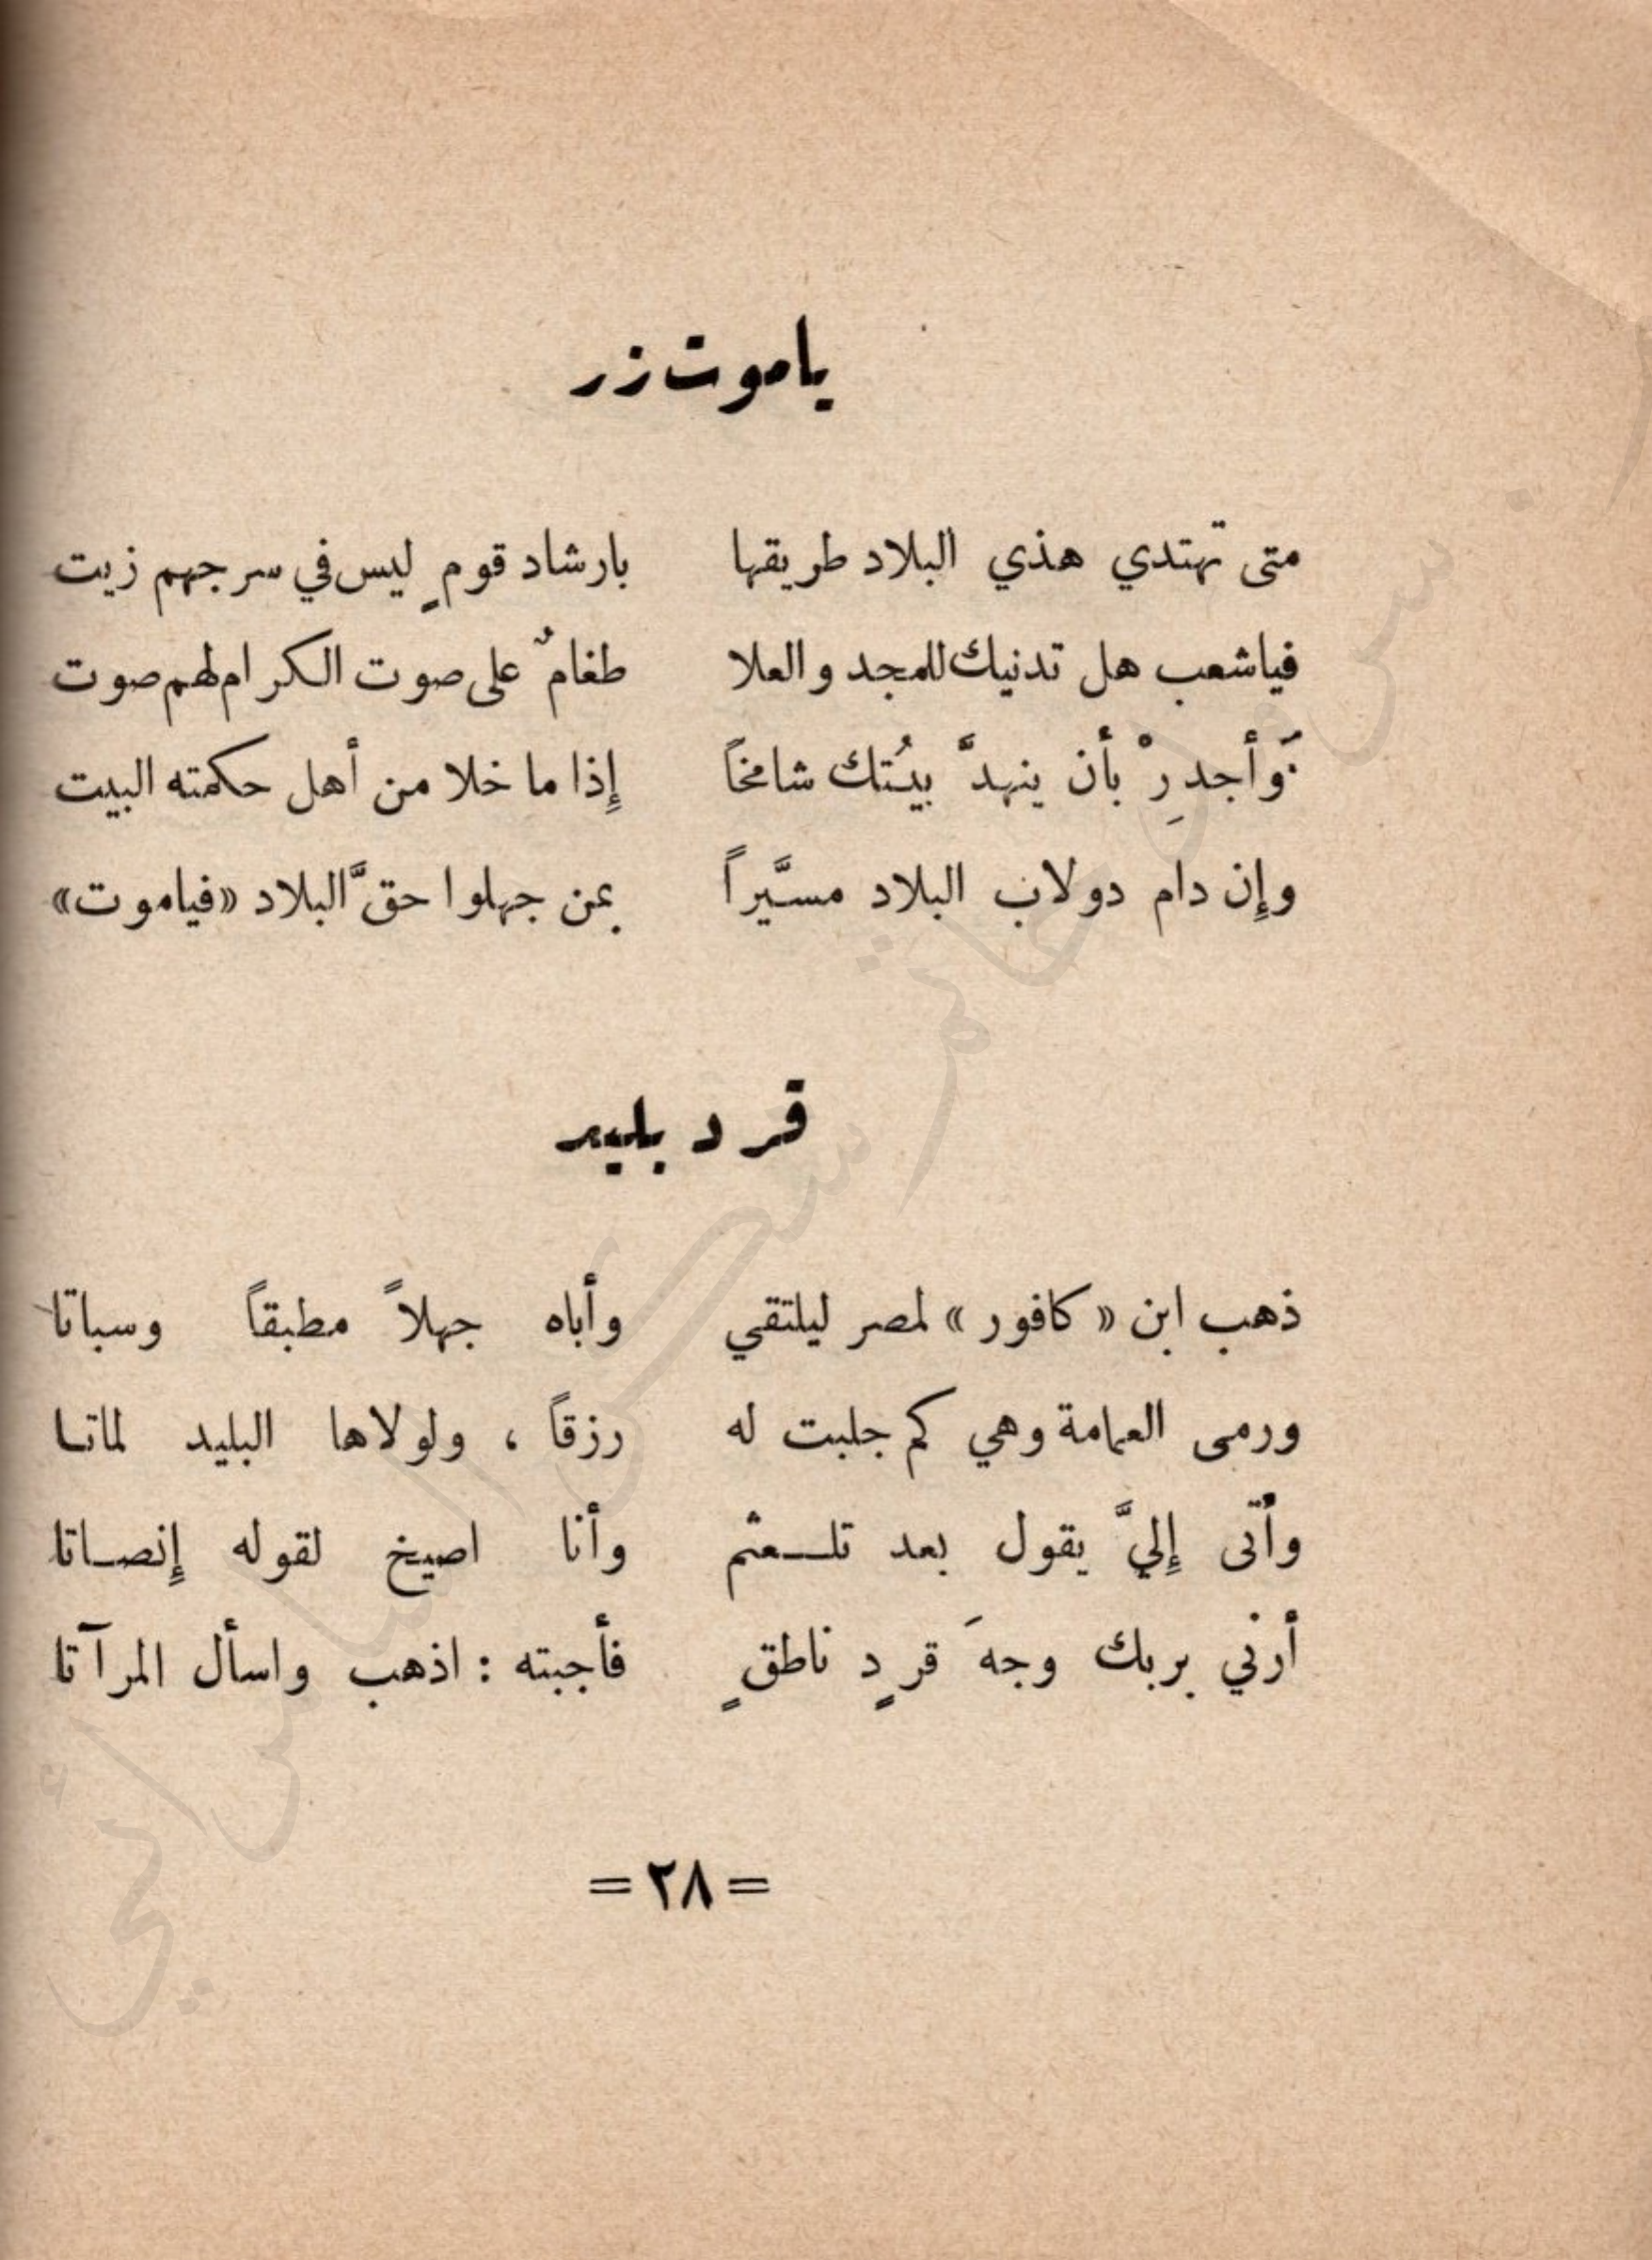 ياموت زر
متى تهتدي هذي البلاد طريقها بارشاد قومٍ ليس في سرجهم زيت
فياشعب هل تدنيك للمجد والعلا طغامٌ على صوت الكرام لهم صوت
وَأجدرِْ بأن ينهدَّ بيُتك شامخاً إِذا ما خلا من أهل حكمته البيت
وإِن دام دولاب البلاد مسيَّراً بمن جهلوا حقَّ البلاد «فياموت»
قرد بليد
ذهب ابن « كافور » لمصر ليلتقي وأباه جهلاً مطبقاً وسباتا
ورمى العمامة وهي كم جلبت له رزقاً ، ولولاها البليد لماتا
وأتى إِليَّ يقول بعد تلـعثم وأنا اصيخ لقوله إِنصـاتا
أرني بربك وجهَ قردٍ ناطقٍ فأجبته : اذهب واسأل المرآتا
= ٢٨ =